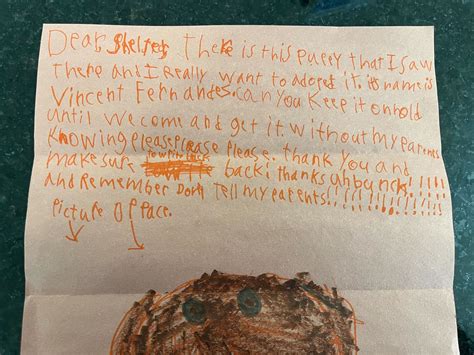 Dear, Shelter, There is this pueey that I saw
there and I really want to adoped it. its name is
Vincent Fernandes. can you keep it on hold
until we come and get it. without my parents
knowing please please please. thank you and
make sure back! thanks uh bunch!!!!!
and Remember Don't Tell my parents!!!!!!!!!!!!!
Picture Of face.